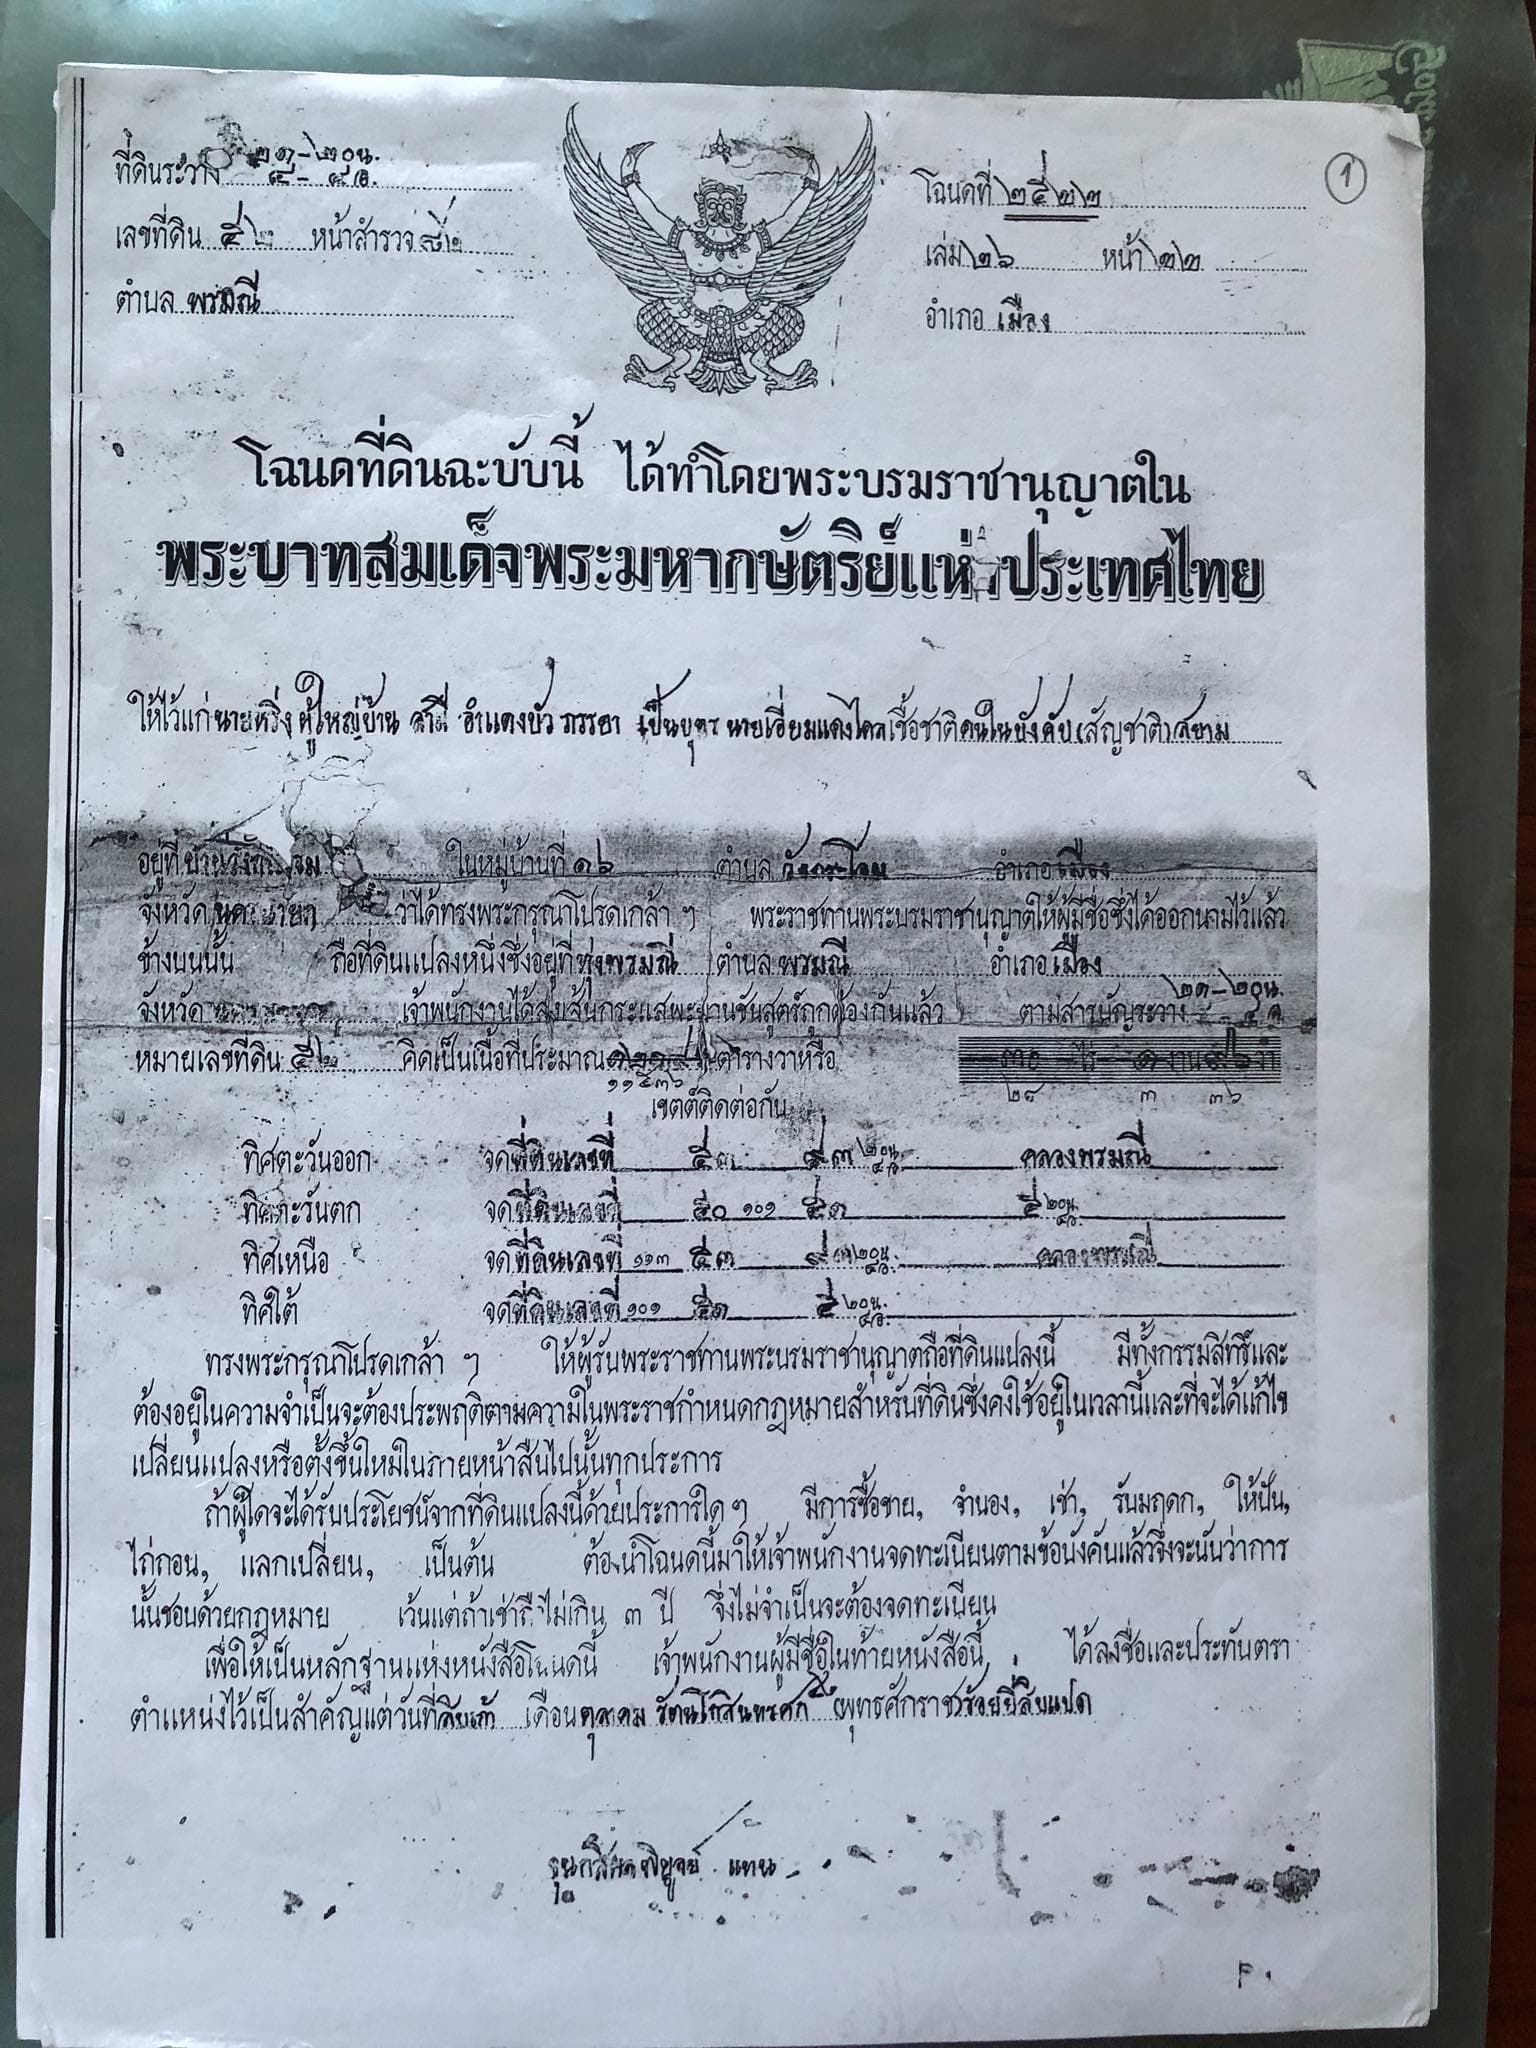 ที่ดินระวาง ๒๓-๒๐น. ๔-๔อ.
โฉนดที่ ๒๔๒๒
①
เลขที่ดิน ๕๒ หน้าสำรวจ
เล่ม ๒๖ หน้า ๒๒
ตำบล พรมณี
อำเภอ เมือง
โฉนดที่ดินฉะบับนี้ ได้ทำโดยพระบรมราชานุญาตใน
พระบาทสมเด็จพระมหากษัตริย์แห่งประเทศไทย
ให้ไว้แก่ นายหริ่ง ผู้ใหญ่บ้าน สามี อำแดงบัว ภรรยา เป็นบุตร นายเอี่ยมแดงไค เชื้อชาติ คนในบังคับ (สัญชาติ) สยาม
อยู่ที่ ในหมู่บ้านที่ ๑๖ ตำบล วังกระโจม อำเภอ เมือง
จังหวัด ว่าได้ทรงพระกรุณาโปรดเกล้า ฯ พระราชทานพระบรมราชานุญาตให้ผู้มีชื่อซึ่งได้ออกนามไว้แล้ว
ข้างบนนั้น ถือที่ดินแปลงหนึ่งซึ่งอยู่ที่ ทุ่งพรมณี ตำบล พรมณี อำเภอ เมือง
จังหวัด เจ้าพนักงานได้สงเส้นกระแสพะยานชันสูตร์ถูกต้องกันแล้ว ตามสารบัญระวาง ๒๓-๒๐น.
หมายเลขที่ดิน ๕๒ คิดเป็นเนื้อที่ประมาณ ตารางวาหรือ ไร่ งาน วา
๑๑๕๓๖ ๒๘ ๓ ๓๖
เขตต์ติดต่อกัน
ทิศตะวันออก จดที่ดินเลขที่ ๕๓ ๙๓ ๒๐น. ๔อ. คลองพรมณี
ทิศตะวันตก จดที่ดินเลขที่ ๕๐ ๑๐๑ ๕๓ ๕ ๒๐น. ๔อ.
ทิศเหนือ จดที่ดินเลขที่ ๑๑๓ ๕๓ ๙๓ ๒๐น. ๔อ. คลองพรมณี
ทิศใต้ จดที่ดินเลขที่ ๑๐๑ ๕๓ ๕ ๒๐น. ๔อ.
ทรงพระกรุณาโปรดเกล้า ฯ ให้ผู้รับพระราชทานพระบรมราชานุญาตถือที่ดินแปลงนี้ มีทั้งกรรมสิทธิ์และ
ต้องอยู่ในความจำเป็นจะต้องประพฤติตามความในพระราชกำหนดกฎหมายสำหรับที่ดินซึ่งคงใช้อยู่ในเวลานี้และที่จะได้แก้ไข
เปลี่ยนแปลงหรือตั้งขึ้นใหม่ในภายหน้าสืบไปนั้นทุกประการ
ถ้าผู้ใดจะได้รับประโยชน์จากที่ดินแปลงนี้ด้วยประการใด ๆ มีการซื้อขาย, จำนอง, เช่า, รับมฤดก, ให้ปัน,
ไถ่ถอน, แลกเปลี่ยน, เป็นต้น ต้องนำโฉนดนี้มาให้เจ้าพนักงานจดทะเบียนตามข้อบังคับแล้วจึงจะนับว่าการ
นั้นชอบด้วยกฎหมาย เว้นแต่ถ้าเช่าถือไม่เกิน ๓ ปี จึงไม่จำเป็นจะต้องจดทะเบียน
เพื่อให้เป็นหลักฐานแห่งหนังสือโฉนดนี้ เจ้าพนักงานผู้มีชื่อในท้ายหนังสือนี้ ได้ลงชื่อและประทับตรา
ตำแหน่งไว้เป็นสำคัญแต่วันที่ สิบเก้า เดือน ตุลาคม รัตนโกสินทรศก พุทธศักราช ร้อยยี่สิบแปด
แทน
F.